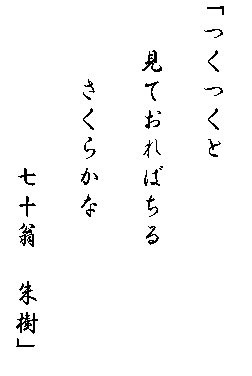 「つくつくと
見ておればちる
さくらかな
七十翁　朱樹」